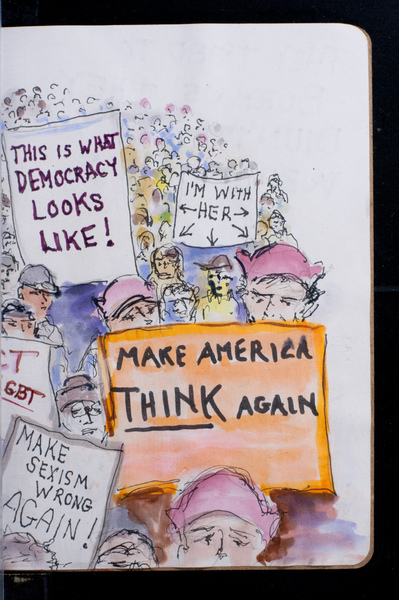 THIS IS WHAT
DEMOCRACY
LOOKS
LIKE!
I'M WITH
HER
MAKE AMERICA
THINK AGAIN
GBT
MAKE
SEXISM
WRONG
AGAIN!